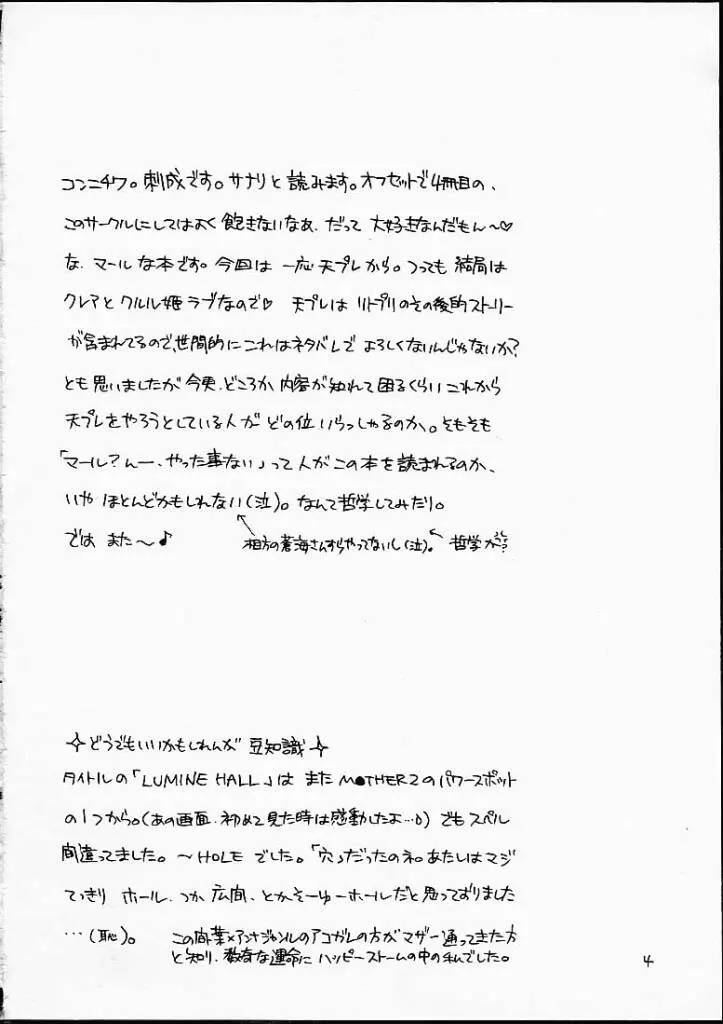 コンニチワ。刺成です。サナリと読みます。オフセットで4冊目の、
このサークルにしてはよく飽きないなぁ、だって大好きなんだもん〜♡
な、マールな本です。今回は一応天プレから。つっても結局は
クレアとクルル姫ラブなので♡ 天プレはリトプリのその後的ストーリー
が含まれてるので、世間的にこれはネタバレでよろしくないんじゃないか?
とも思いましたが今更、どころか内容が知れて困るくらいこれから
天プレをやろうとしている人がどの位いらっしゃるのか。そもそも
「マール?んー、やった事ない」って人がこの本を読まれるのか、
いやほとんどかもしれない(泣)。なんて哲学してみたり。
では また〜♪ 相方の蒼海さんすらやってないし(泣)。 哲学か?
☆どうでもいいかもしれんが 豆知識☆
タイトルの「LUMINE HALL」はまたMOTHER2のパワースポット
の1つから。(あの画面、初めて見た時は感動したよ…) でもスペル
間違ってました。〜HOLEでした。「穴」だったのネ。あたしはマジ
てっきり ホール、つか広間、とかそーゆーホールだと思っておりました
…(恥)。 このアンナジャンルのアコガレの方がマザー通ってきた方
と知り、数奇な運命にハッピーストームの中の私でした。
4